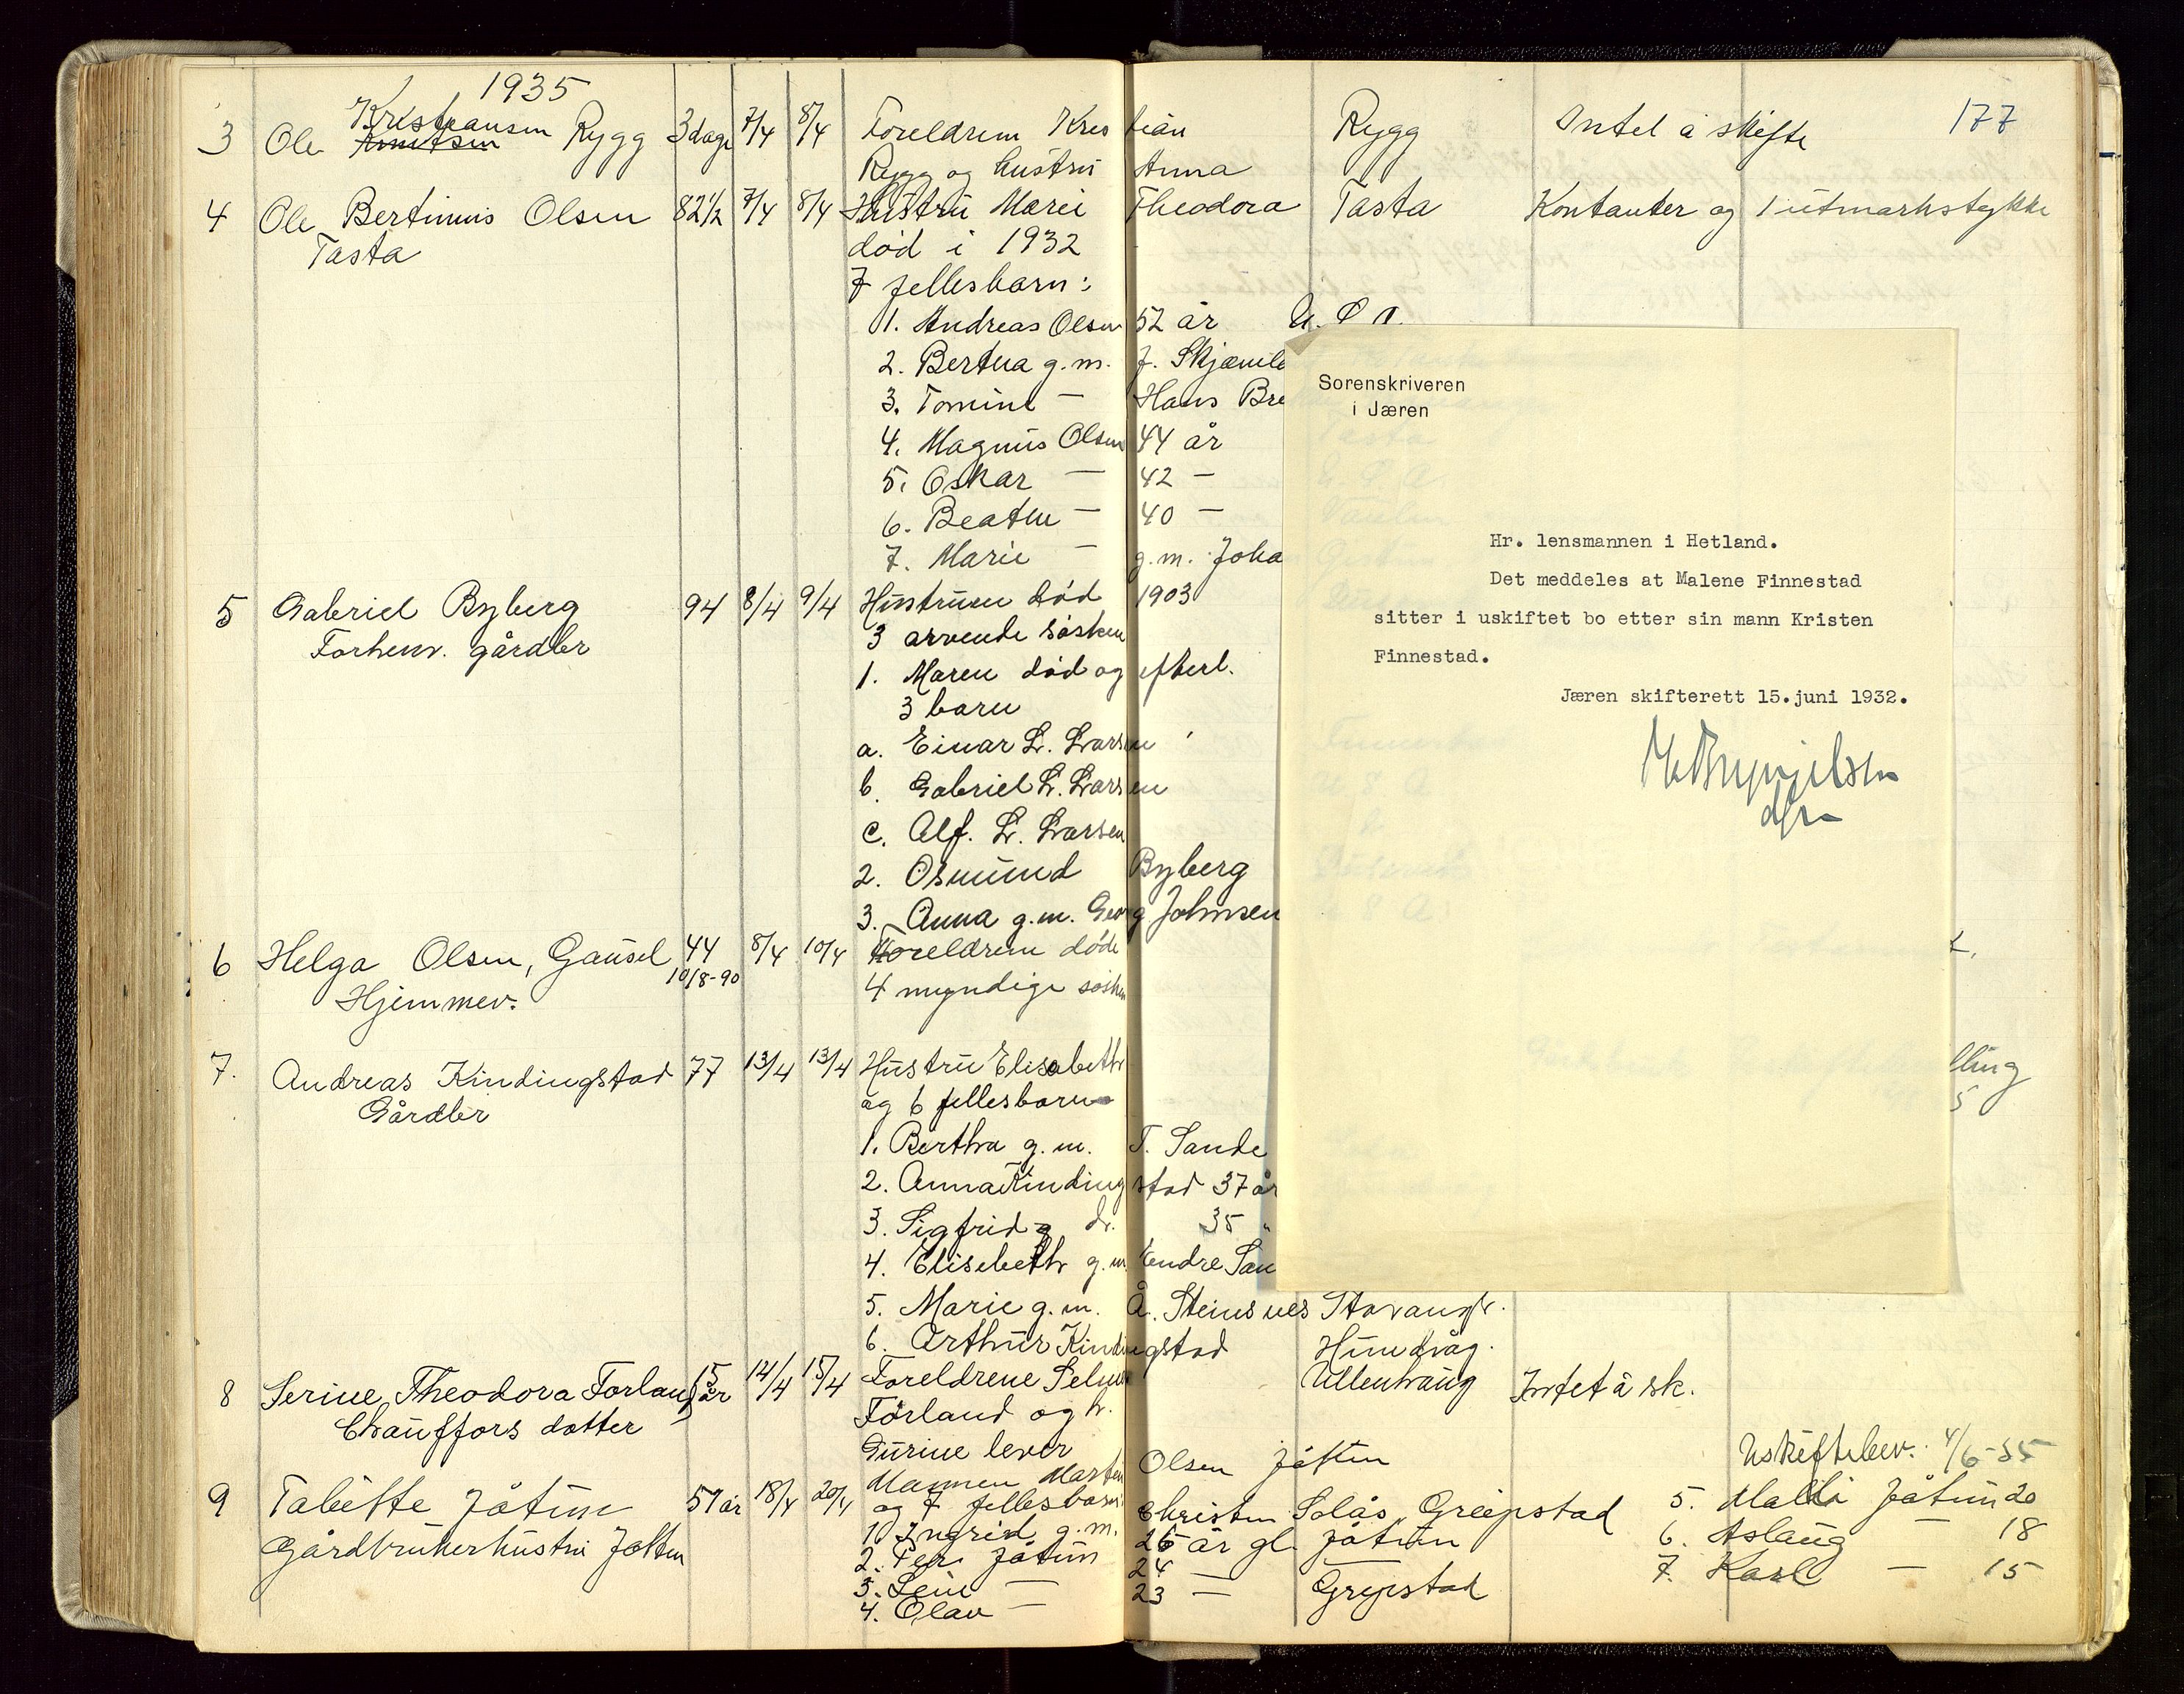 1935
177
3 Ole Kristiansen Rygg 3 dage 7/4 8/4 Foreldrene Kristian Rygg Intet å skifte
Knutsen
Rygg og hustru Anna
4 Ole Bertinius Olsen 82 1/2 7/4 8/4 Hustru Marie Theodora Tasta Kontanter og 1 utmarkstykke
Tasta død i 1932
7 fellesbarn:
1. Andreas Olsen 52 år U. S. A.
2. Bertha g.m. J. Skjæmle
3. Tomine — Hans Bre
4. Magnus Olsen 44 år
5. Oskar — 42 —
6. Beaten — 40 —
7. Marie — g.m. Joha
5 Gabriel Byberg 94 8/4 9/4 Hustruen død 1903
Forhenv. gårdbr 3 arvende søsken
1. Maren død og efterl.
3 barn
a. Einar L. Larsen
b. Gabriel L. Larsen
c. Alf. L. Larsen
2. Osmund Byberg
3. Anna g.m. Georg Johnsen
6 Helga Olsen, Gausel 44 8/4 10/4 Foreldrene døde
10/8-90
Hjemmev. 4 myndige søsken
7. Andreas Kindingstad 77 13/4 13/4 Hustru Elisabeth
Gårdbr og 6 fellesbarn
lling
5
1. Bertha g.m. T. Sande
2. Anna Kindingstad 37 år
3. Sigfrid dr. 35 "
4. Elisebeth g.m. Endre San
5. Marie g.m. A. Steinsnes Stavanger.
6. Arthur Kindingstad Hundvåg.
8 Serine Theodora Forland 15 år 14/4 15/4 Foreldrene Selmer Ullenhaug Intet å sk.
Chauffors dotter Førland og h.
Gurine lever
Uskiftebev. 4/6-35
9 Tabitte Jåtun 51 år 18/4 20/4 Mannen Martin Olsen Jåtten
Gårdbrukerhustru Jåtten og 7 fellesbarn
1. Ingrid g.m. Christen Solås Greipstad
2. Per Jåtun 26 år gl. Jåtun
3. Leiv — 24 —
4. Olav — 23 — Greipstad
5. Malli Jåtun 20
6. Aslaug — 18
7. Karl — 15
Sorenskriveren
i Jæren
Hr. lensmannen i Hetland.
Det meddeles at Malene Finnestad
sitter i uskiftet bo etter sin mann Kristen
Finnestad.
Jæren skifterett 15.juni 1932.